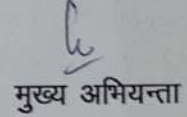 मुख्य अभियन्ता